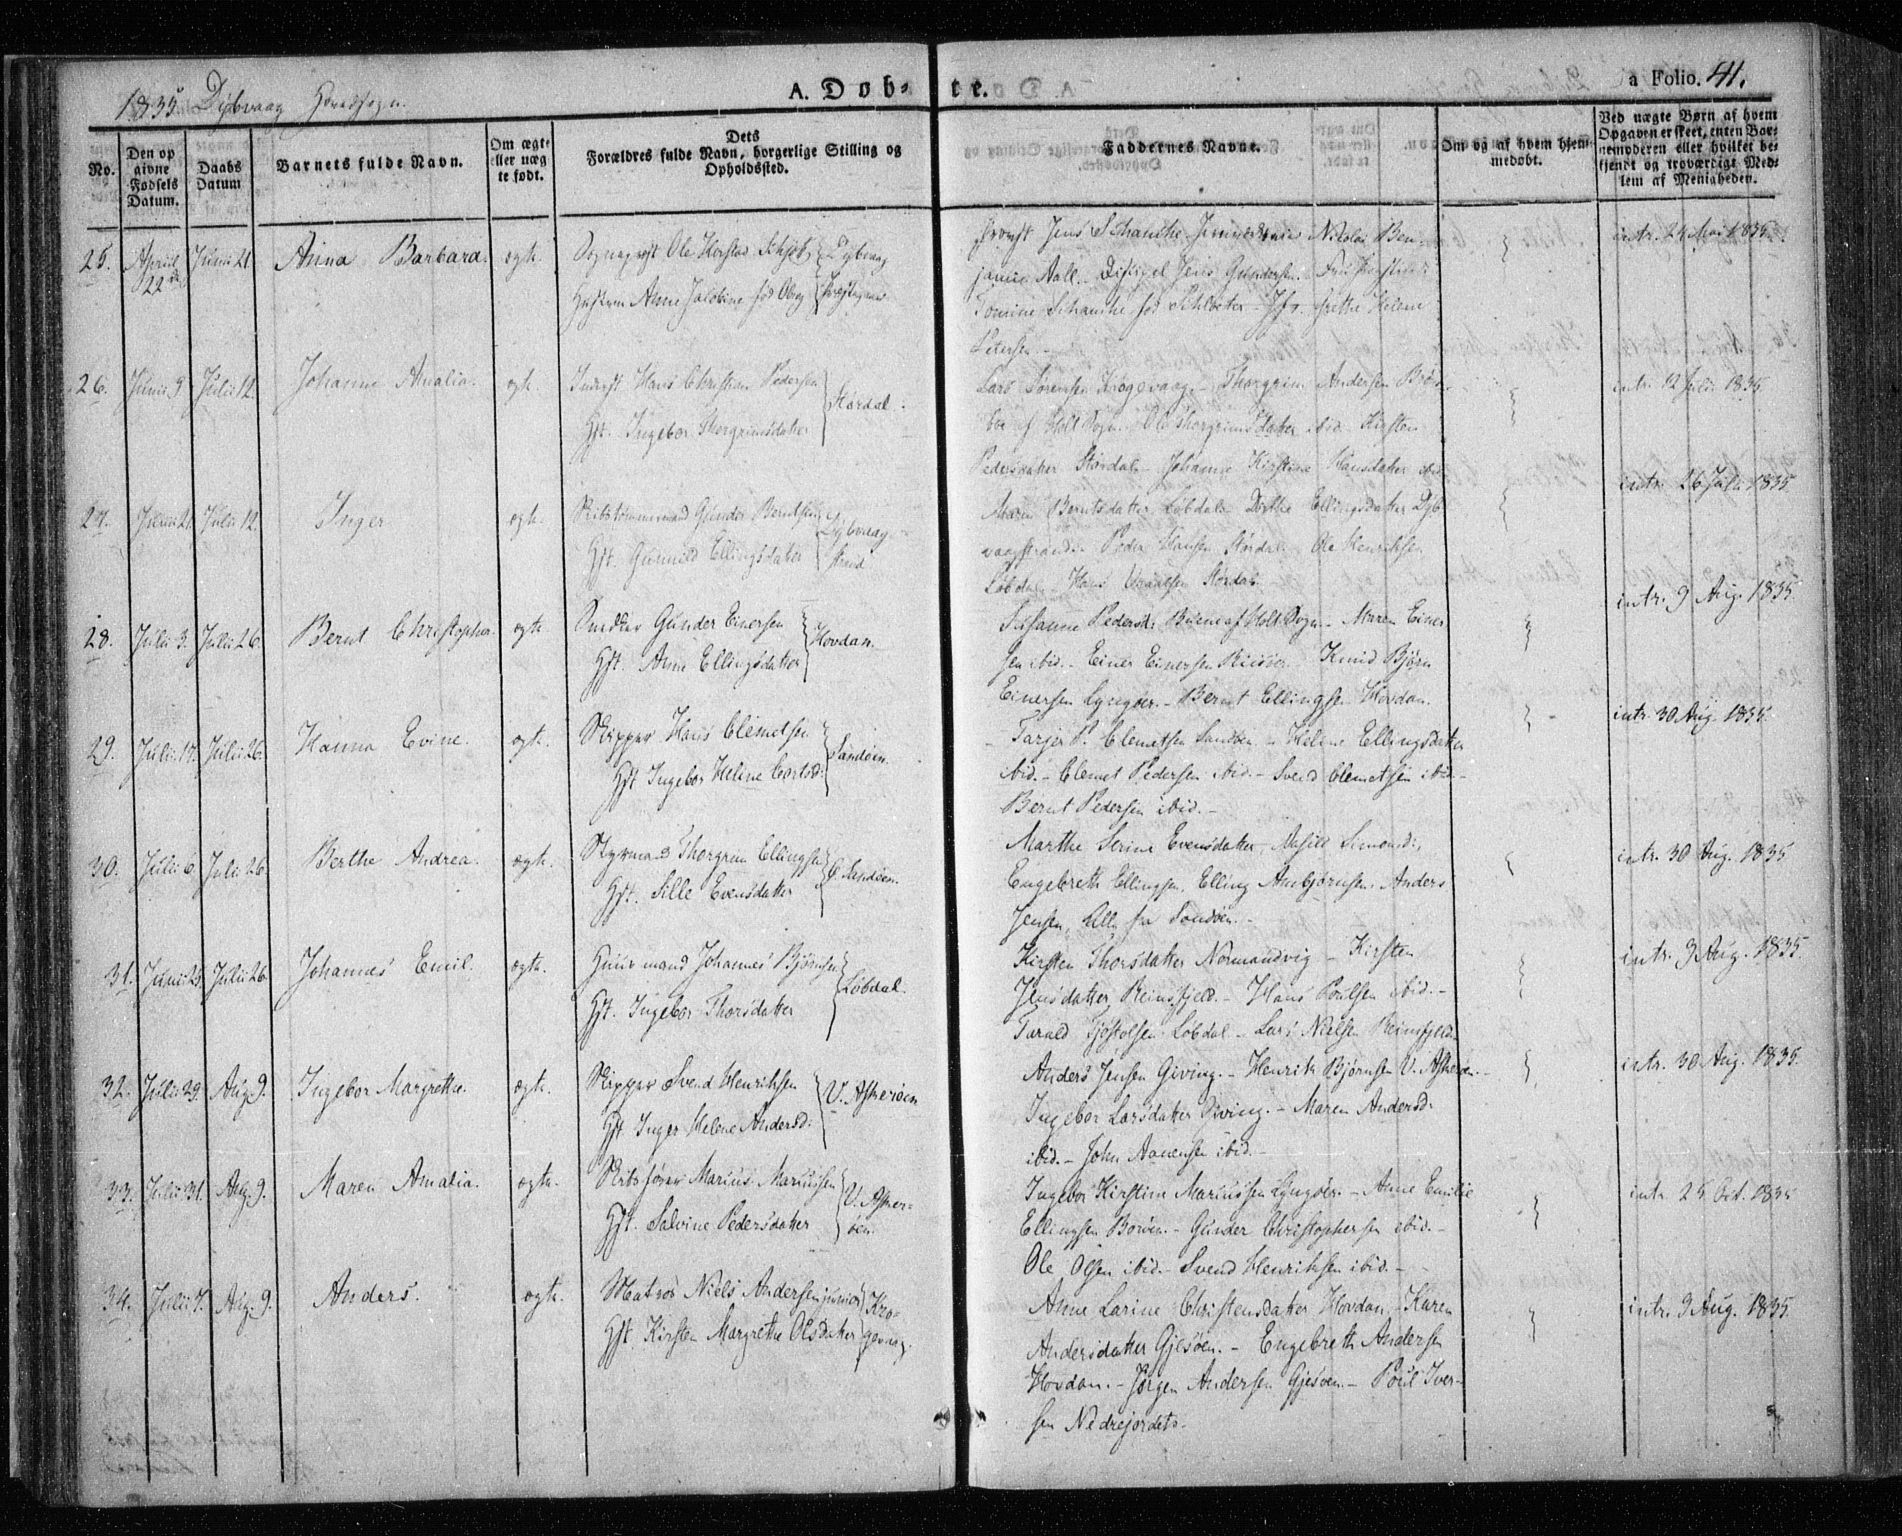 1835 Dybvaag Hovedsogn.
A. Døbte.
a Folio. 41.
No.
Den opgivne Fødsels Datum.
Daabs Datum
Barnets fulde Navn.
Om ægte eller uægte født.
Dets
Forældres fulde Navn, borgerlige Stilling og
Opholdssted.
Faddernes Navne.
Om og af hvem hjemmedøbt.
Ved uægte Børn af hvem
Opgaven er skeet, enten Bar-
nemoderen eller hvilket be-
kjendt og troværdigt Med-
lem af Menigheden.
25. April 22de Junii 21. Anna Barbara. egte. Sogneprest Ole Dybvaag
Hustrue Anne Jacobine fød Præstegaard
Provst Jens Schanche Nicolai Ben-
jamin Aall. Jens Gundersen.
Tomine Schanche fød Jfr. Grethe Helene
Petersen.
intr. 24 Mai 1835.
26. Junii 9. Julii 12. Johanne Amalia. egte. Hans Christian Pedersen
Hst. Ingebor Thorgrimsdatter Stordal.
Lars Sørensen Krogevaag. Thorgrim Andersen
af Holt Sogn. Ole Thorgrimsdatter ibid. Kirsten
Pedersdatter Stordal. Johanne Kirstine Hansdatter ibid
intr. 12 Julii 1835
27. Junii 21. Julii 12. Inger egte. Gunder Berntsen
Hst. Gunnild Ellingsdatter Dybvaag-
strand
Maren Berntsdatter Løbdal. Dorthe Ellingsdatter Dyb-
vaagstrand. Peder Hansen Stordal. Ole Henriksen
Løbdal. Hans Stordal.
intr. 26 Julii 1835
28. Julii 3. Julii 26. Bernt Christopher. egte. Gunder Einersen
Hst. Anne Ellingsdatter Hovdan.
Susanne Pedersd: af Holt Sogn. Maren Einer-
sen ibid. Einer Einersen Knud Bjørn
Einersen Lyngøer. Bernt Ellingsen Hovdan.
intr. 9 Aug. 1835.
29. Julii 17. Julii 26. Hanna Evine. egte. Skipper Hans Clemetsen
Hst Ingebor Helene Sandøen.
Tarjer P. Clemetsen Sandøen - Helene Ellingsdatter
ibid. - Clemet Pedersen ibid. - Svend Clemetsen ibid. -
Bernt Pedersen ibid. -
intr. 30 Aug. 1835.
30. Julii 6. Julii 26. Berthe Andrea. egte. Styrmand Thorgrim Ellingsen
Hst. Sille Evensdatter Sandøen.
Marthe Serine Evensdatter, Simonsd:,
Engebreth Ellingsen. Elling Anbjørnsen. Anders
Jensen, Alle fra Sandøen. -
intr. 30 Aug. 1835
31. Junii 23. Julii 26. Johannes Emil. egte. Huusmand Johannes Bjørnsen
Hst. Ingebor Thorsdatter Løbdal.
Kirsten Thorsdatter Normandvig - Kirsten
Jensdatter Reinsfjeld. - Hans Poulsen ibid. -
Tarald Tjøstolsen Løbdal - Lars Nielsen Reinsfjeld.
intr. 9 Aug. 1835.
32. Julii 29. Aug. 9. Ingebor Margrethe. egte. Skipper Svend Henriksen
Hst Inger Helene Andersd: V. Askerøen
Anders Jensen Giving. - Henrik Bjørnsen V. Askerøen. -
Ingebor Larsdatter Giving. - Maren Andersd:
ibid. - John Aanensen ibid. -
intr. 30 Aug. 1835.
33. Julii 31. Aug. 9. Maren Amalia. egte. Skibsfører Marius Mariussen
Hst. Salvine Pedersdatter V. Asker-
øen.
Ingebor Kirstine Mariussen Lyngøer. - Anne Emilie
Ellingsen Borøen. - Gunder Christophersen ibid. -
Ole Olsen ibid. - Svend Henriksen ibid. -
intr. 25 Oct. 1835
34. Julii 7. Aug. 9. Anders. egte. Matros Niels Andersen junior
Hst. Kirsten Margrethe Olsdatter Kro-
gevaag.
Anne Larine Christensdatter Hovdan, - Karen
Andersdatter Gjesøen. - Engebreth Andersen
Hovdan. - Jørgen Andersen Gjesøen. - Poul Iver-
sen Nedrejordet. -
intr. 9 Aug. 1835.